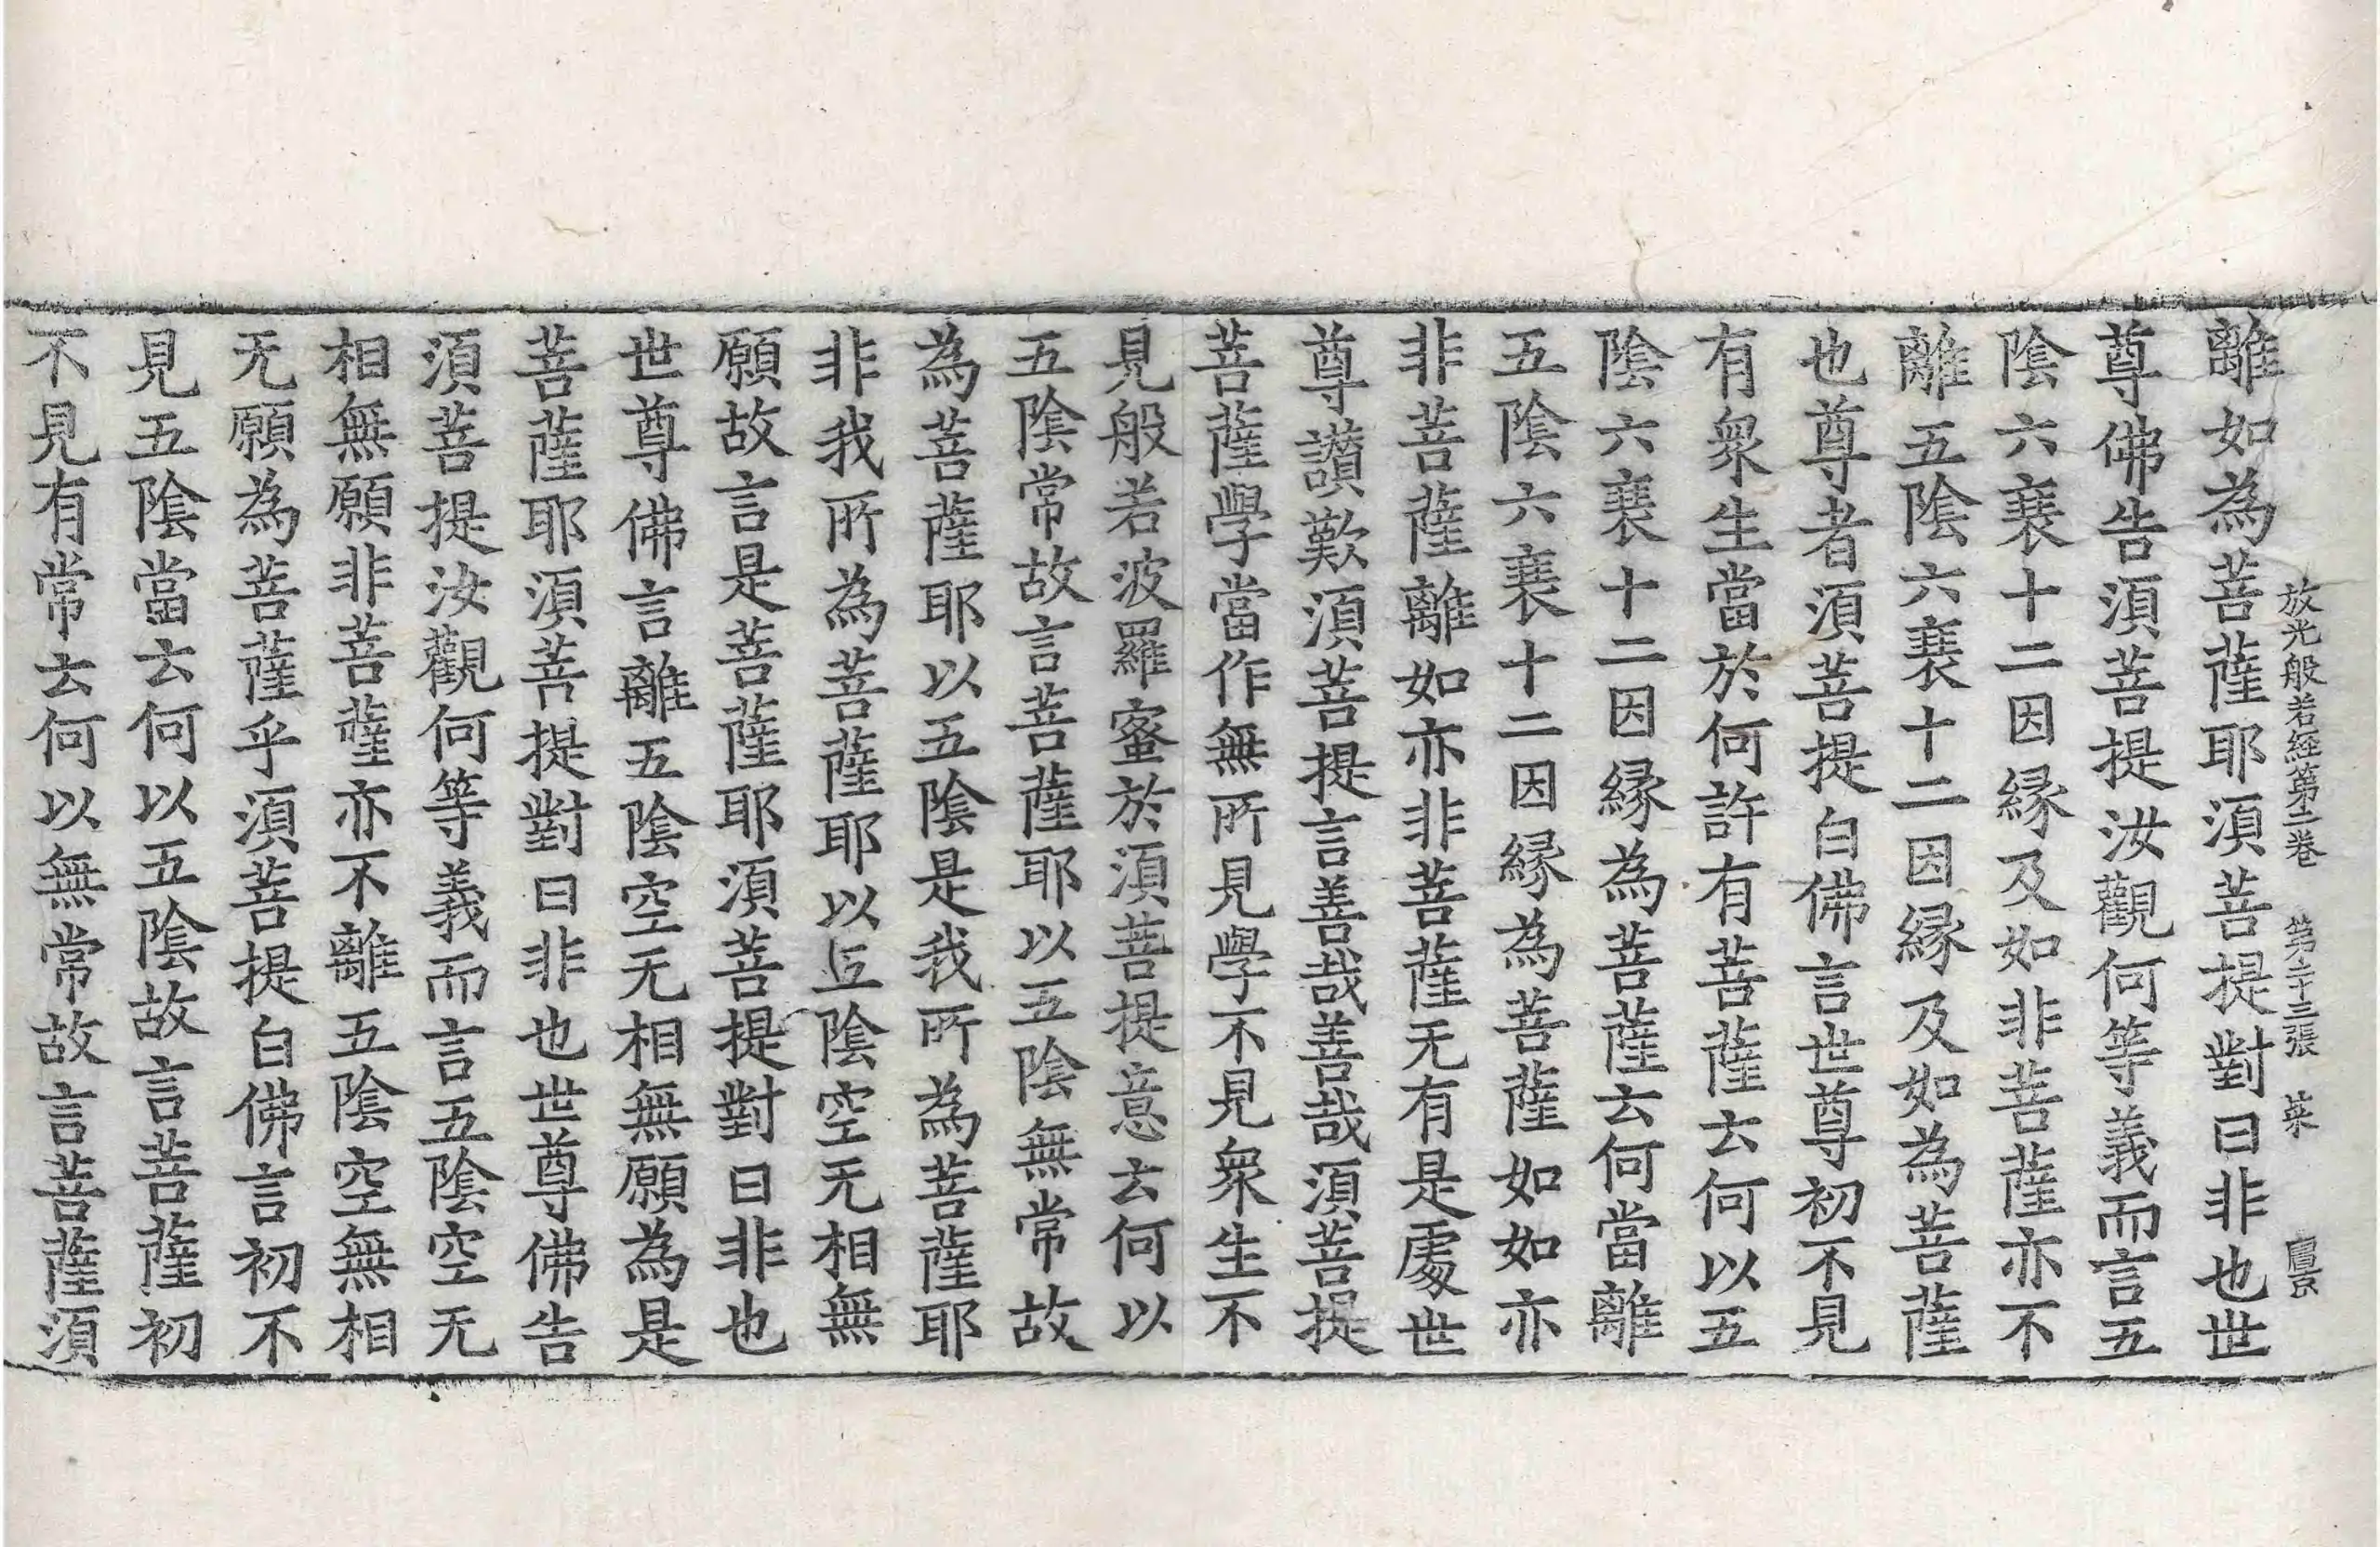 放光般若經第二卷 第二十三張 菜
離如為菩薩耶須菩提對曰非也世
尊佛告須菩提汝觀何等義而言五
陰六衰十二因緣及如非菩薩亦不
離五陰六衰十二因緣及如為菩薩
也尊者須菩提白佛言世尊初不見
有衆生當於何許有菩薩云何以五
陰六衰十二因緣為菩薩云何當離
五陰六衰十二因緣為菩薩如如亦
非菩薩離如亦非菩薩无有是處世
尊讃歎須菩提言善哉善哉須菩提
菩薩學當作無所見學不見衆生不
見般若波羅蜜於須菩提意云何以
五陰常故言菩薩耶以五陰無常故
為菩薩耶以五陰是我所為菩薩耶
非我所為菩薩耶以五陰空无相無
願故言是菩薩耶須菩提對曰非也
世尊佛言離五陰空无相無願為是
菩薩耶須菩提對曰非也世尊佛告
須菩提汝觀何等義而言五陰空无
相無願非菩薩亦不離五陰空無相
无願為菩薩乎須菩提白佛言初不
見五陰當云何以五陰故言菩薩初
不見有常云何以無常故言菩薩須